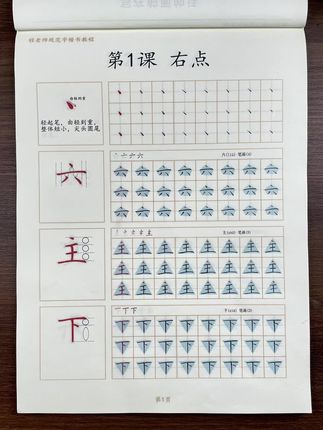 程老师规范字楷书教程
第1课 右点
由轻到重
轻起笔，由轻到重，
整体短小，尖头圆尾
六
六(liù) 笔画(4)
六六六六六六六六
六六六六六六六六
六六六六六六六六
主
主(zhǔ) 笔画(5)
主主主主主主主主
主主主主主主主主
主主主主主主主主
下
下(xià) 笔画(3)
下下下下下下下下
下下下下下下下下
下下下下下下下下
第1页